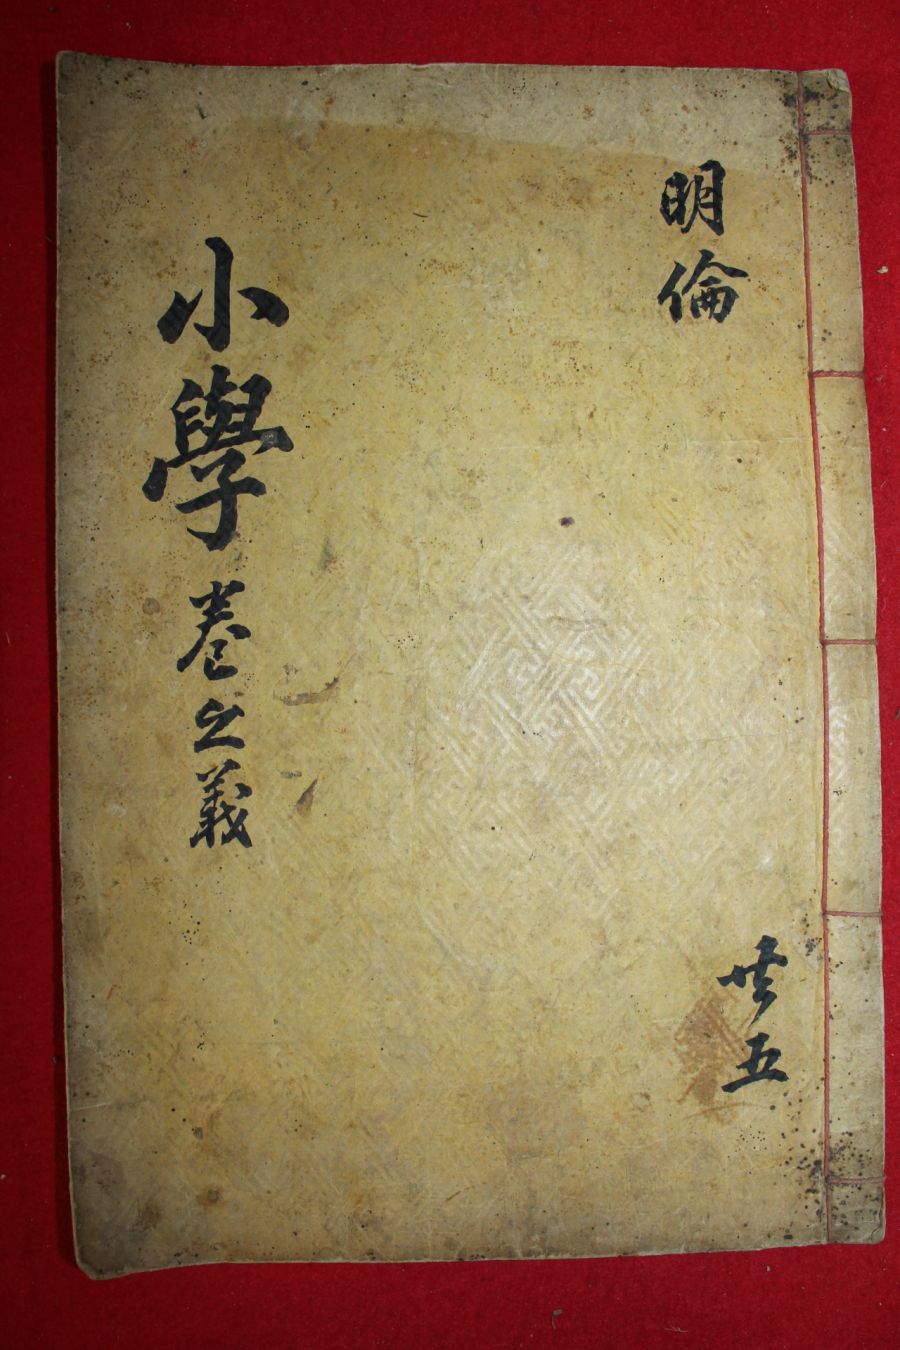 明倫
共五
小學卷之義